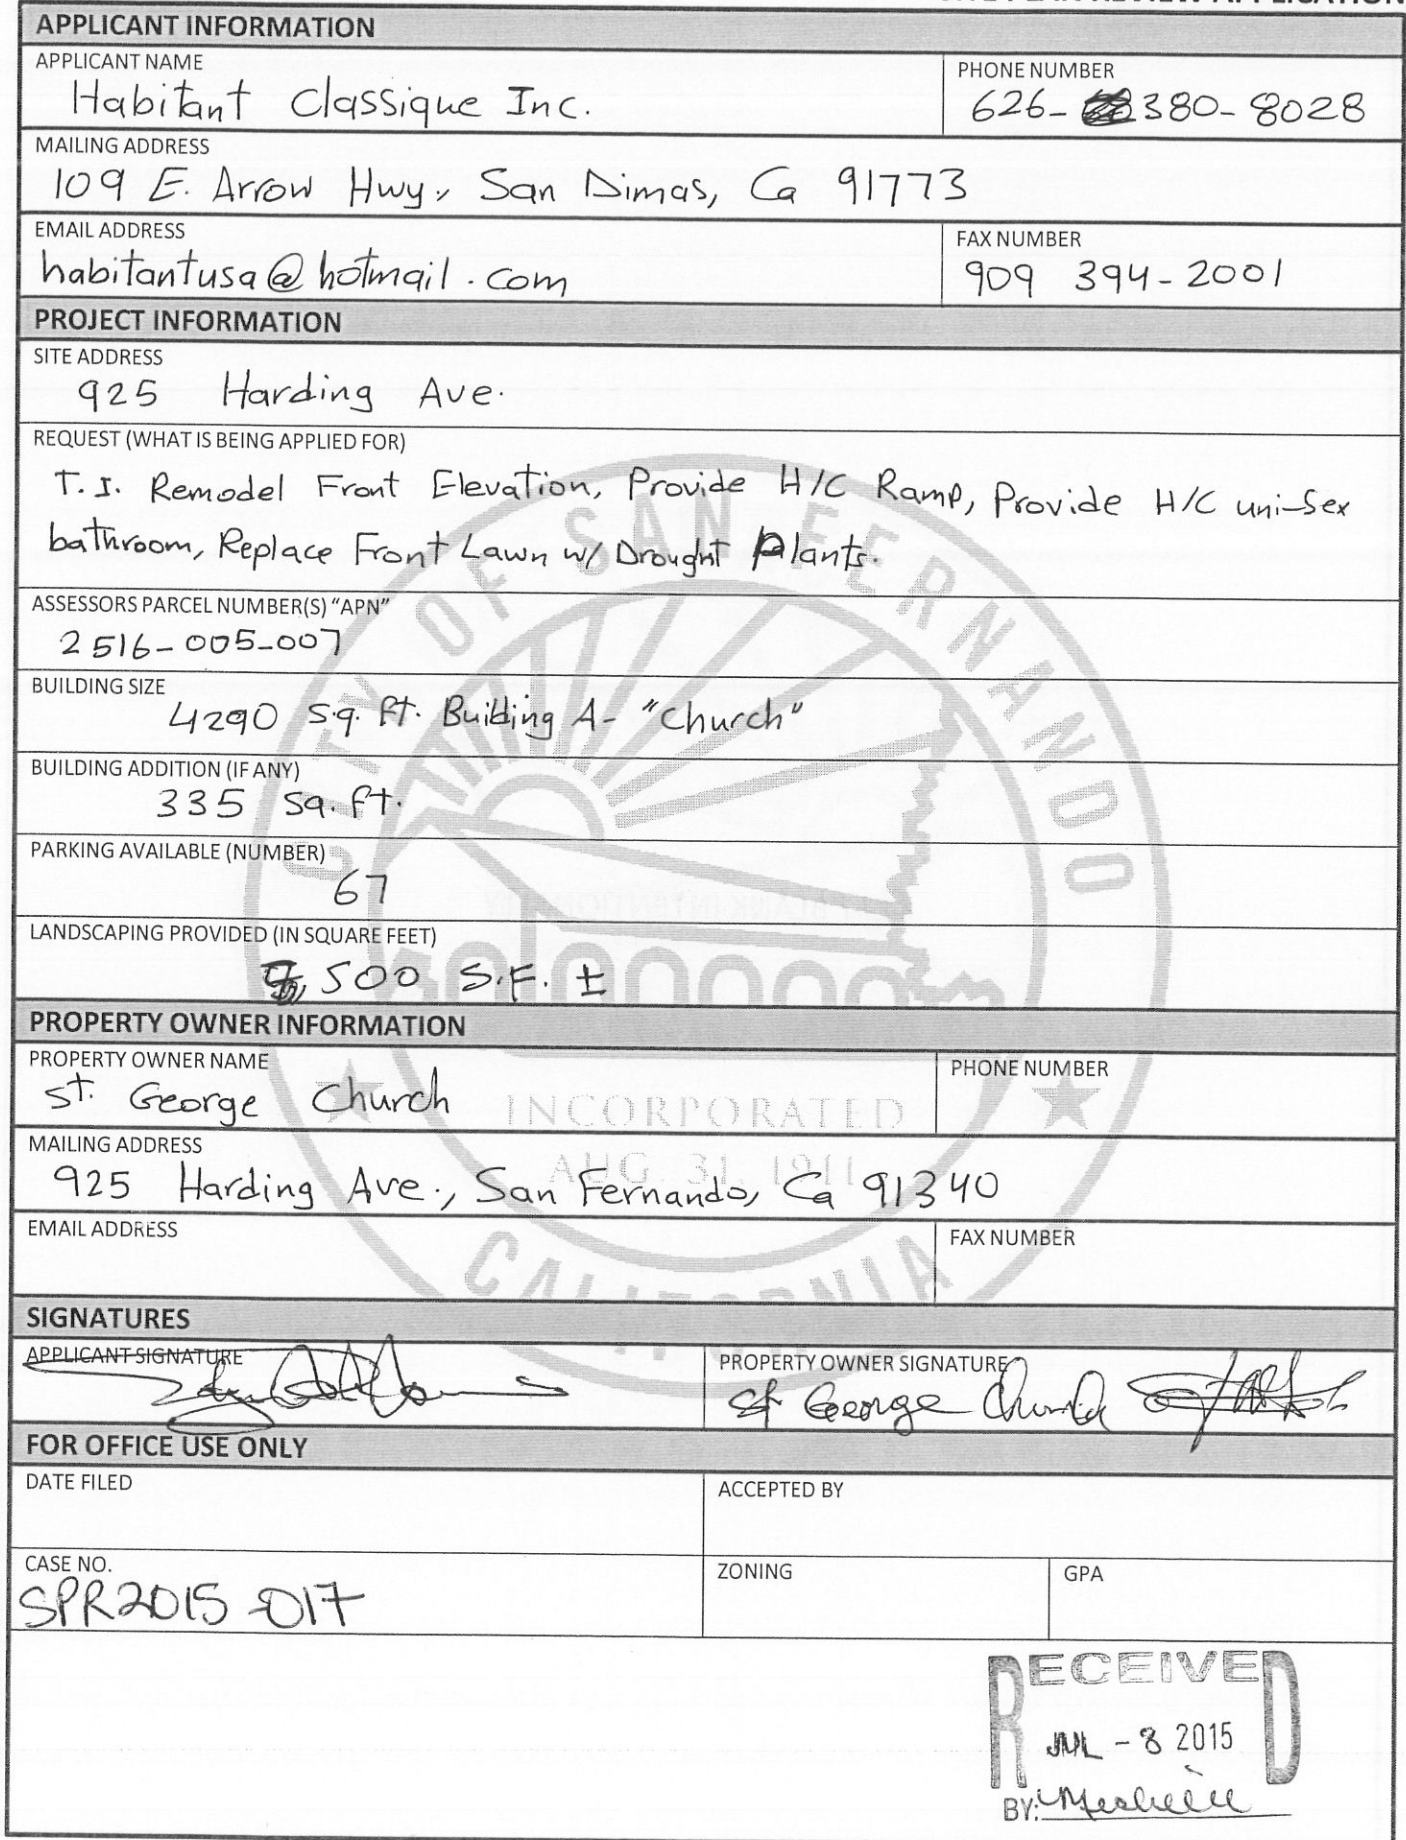 REVIEW APPLICATION
APPLICANT INFORMATION
APPLICANT NAME
Habitant Classique Inc.
PHONE NUMBER
626- 380-8028
MAILING ADDRESS
109 E. Arrow Hwy., San Dimas, Ca 91773
EMAIL ADDRESS
habitantusa@hotmail.com
FAX NUMBER
909 394-2001
PROJECT INFORMATION
SITE ADDRESS
925 Harding Ave.
REQUEST (WHAT IS BEING APPLIED FOR)
T.I. Remodel Front Elevation, Provide H/C Ramp, Provide H/C uni-sex
bathroom, Replace Front Lawn w/ Drought Plants.
ASSESSORS PARCEL NUMBER(S) "APN"
2516-005-007
BUILDING SIZE
4290 sq. ft. Building A- "Church"
BUILDING ADDITION (IF ANY)
335 sq. ft.
PARKING AVAILABLE (NUMBER)
67
LANDSCAPING PROVIDED (IN SQUARE FEET)
500 S.F. ±
CITY OF SAN FERNANDO
INCORPORATED
AUG. 31, 1911
CALIFORNIA
PROPERTY OWNER INFORMATION
PROPERTY OWNER NAME
St. George Church
PHONE NUMBER
MAILING ADDRESS
925 Harding Ave., San Fernando, Ca 91340
EMAIL ADDRESS
FAX NUMBER
SIGNATURES
APPLICANT SIGNATURE
PROPERTY OWNER SIGNATURE
St George Church
FOR OFFICE USE ONLY
DATE FILED
ACCEPTED BY
CASE NO.
SPR2015-017
ZONING
GPA
RECEIVED
JUL - 8 2015
BY: